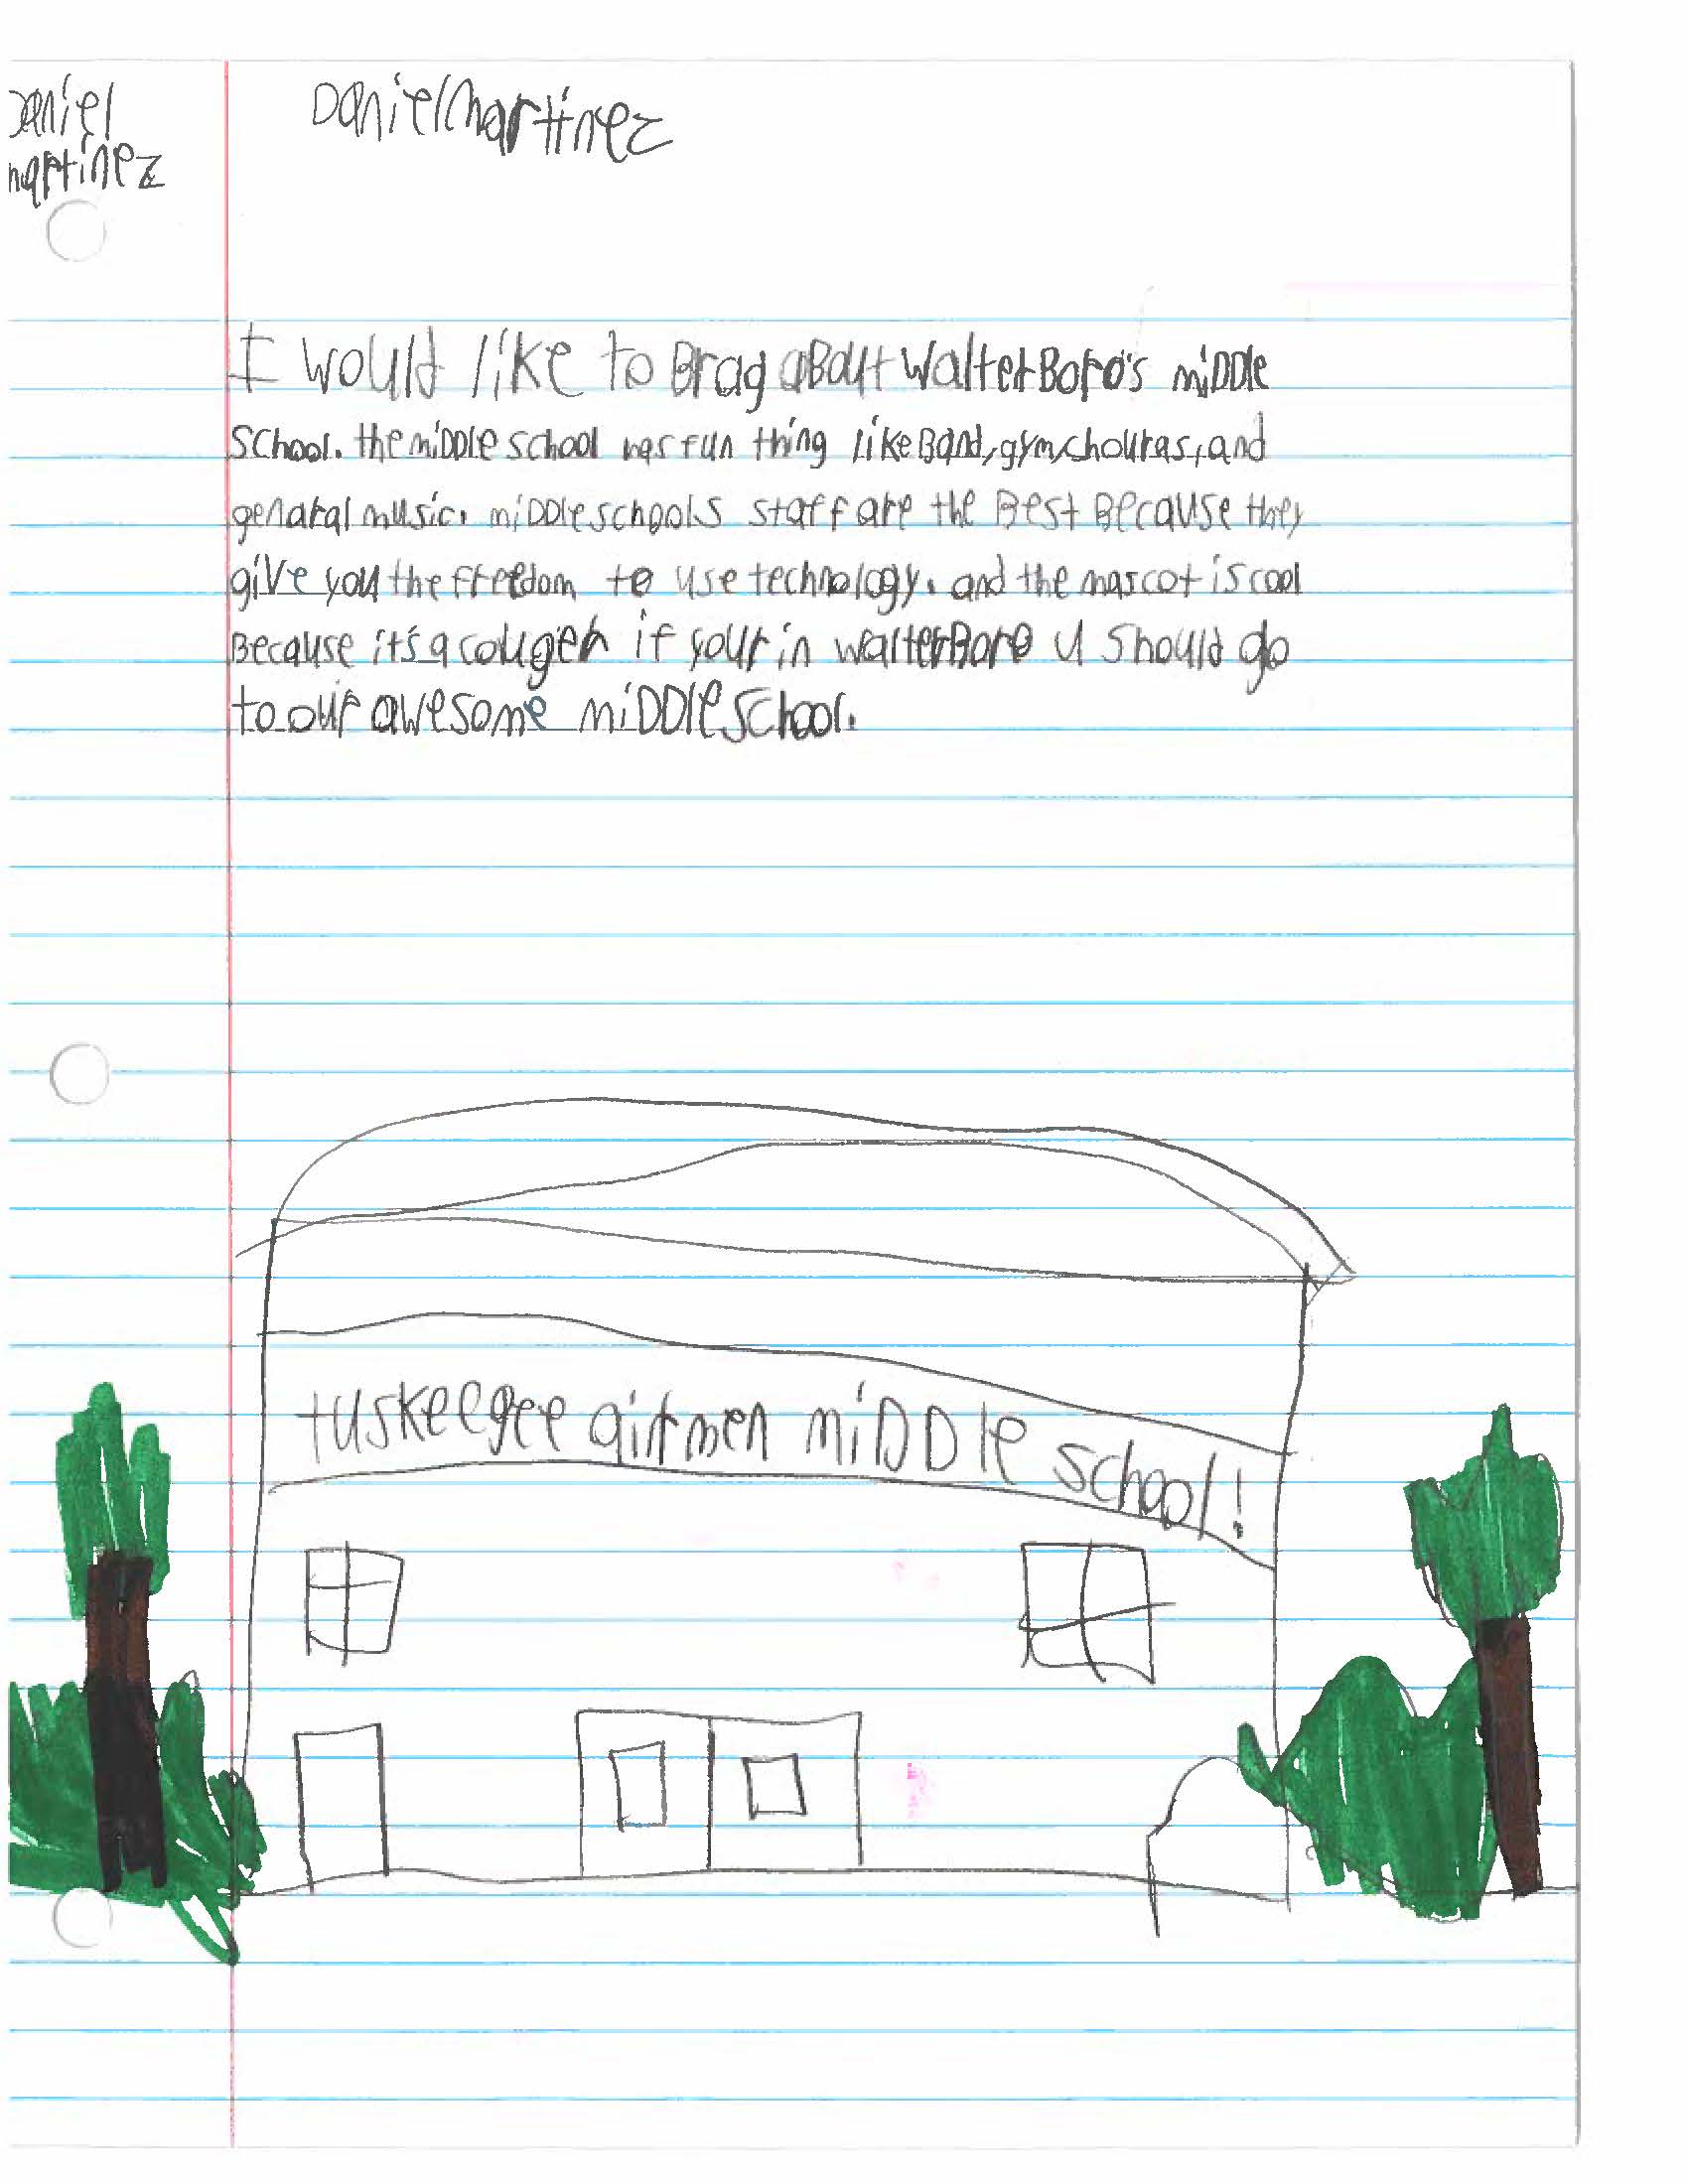 Daniel
martinez
Daniel martinez
I would like to Brag aBout WalterBoro's miDDle
School. the miDDle school has fun thing like Band, gym, chouras, and
genaral music. miDDle schools staff are the Best Because they
give you the freedom to use technology. and the mascot is cool
Because it's a couger if your in walterBoro u should go
to our awesome miDDle School.
tuskeegee airmen miDDle school!